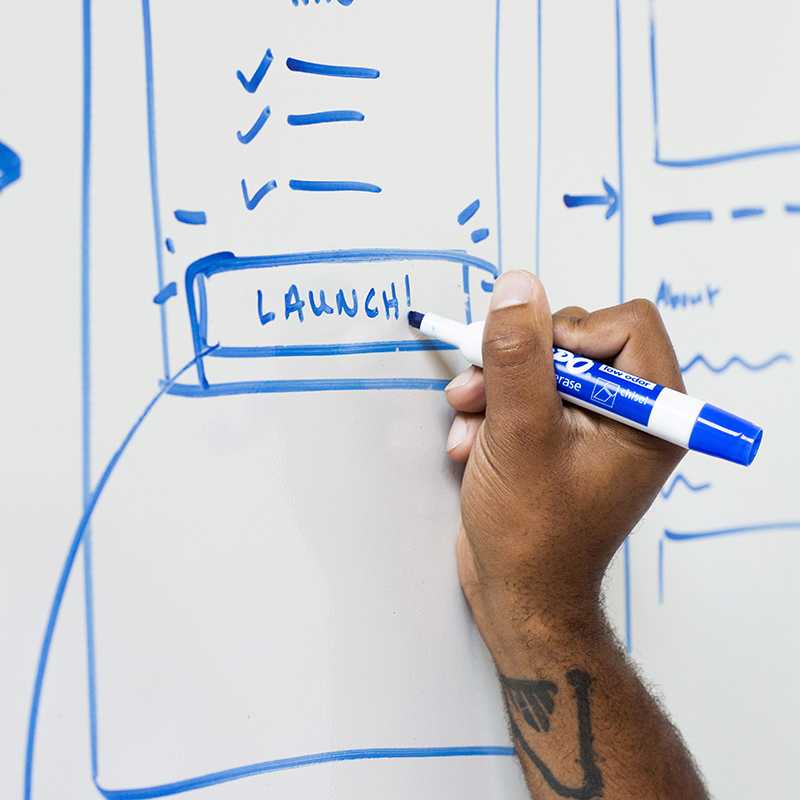 LAUNCH!
About
low odor
erase
chisel